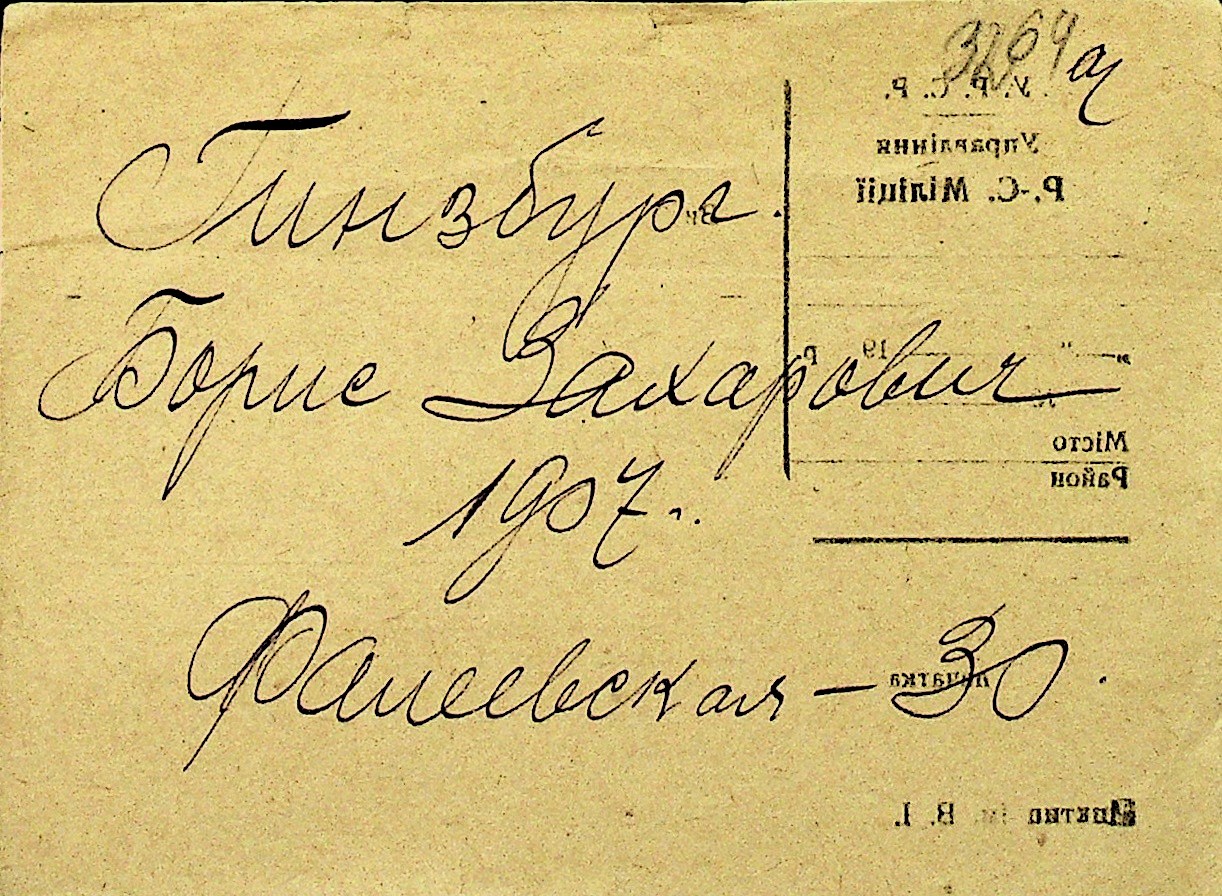 3264
Гинзбург.
Борис Захарович
1907.
Фалеевская – 30.
У. Р. С. Р.
Управління
Р.-С. Міліції
19 р.
Місто
Район
печатка